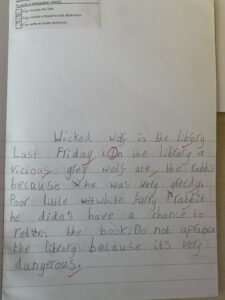 I can include the title.
I can include a headline with alliteration.
I can write accurate sentences.
Wicked wolf in the library
Last Friday, In the library a
vicious grey wolf are the rabbit
because he was very greedy.
Poor little white furry rabbit
he didn't have a chance to
return the book. Do not
the library because it's very
dangerous.